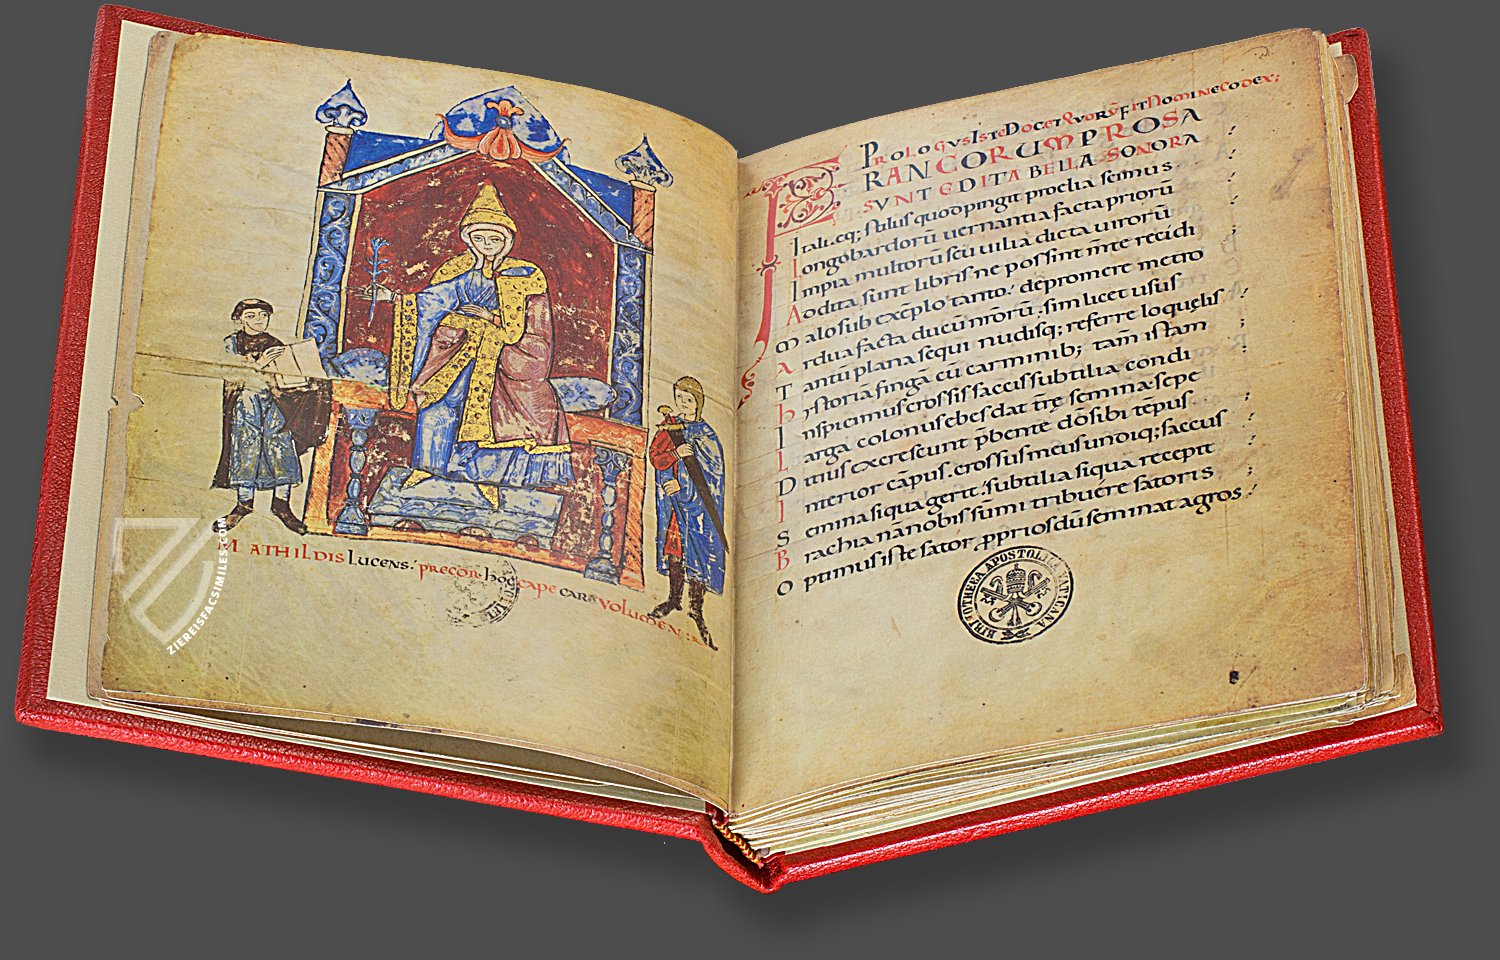 MATHILDIS LUCENS: PRECOR HOC CAPE CARA VOLUMEN:
ZIEREISFACSIMILES.COM
PROLOGUS ISTE DOCET QUORŪ FIT NOMINE CODEX;
FRANCORUM PROSA
SUNT EDITA BELLA SONORA
Itali.eq; stilus quod pingit proelia scimus.
Longobardorū uernantia facta priorū
Impia multorū seu uilia dicta uirorū
Aodita sunt libris ne possint m̄te recidi
Malo sub exēplo tanto: depromere metro
Ardua facta ducū nr̄orū. sim licet usus
Tantū plana sequi nudisq; referre loquelis
hystoriā fingā cū carminib; tam̄ istam
Inspicimus crossis saccis subtilia condi
Larga colonus ebes dat tr̄e semina sepe
Ditius excrescunt p̄bente dō sibi tēpus.
Interior cāpus. crossus meus undiq; saccus
Semina siqua gerit. subtilia siqua recepit
Brachia nā nobis sūmi tribuēre satoris
Optimus iste sator pprios dū seminat agros
BIBLIOTHECA APOSTOLICA VATICANA